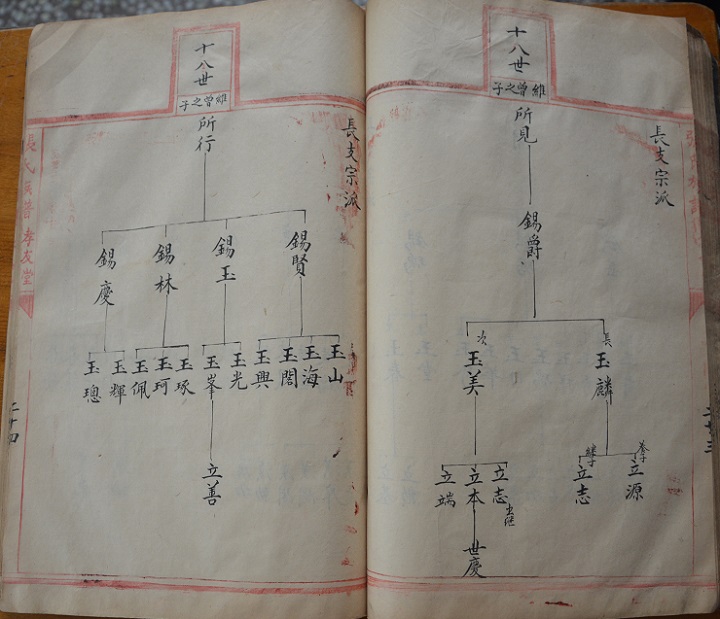 十八世
維曾之子
長支宗派
所見
錫爵
長 玉麟
次 玉美
養子 立源
継子 立志
立志 出继
立本
立端
世慶
二十三
十八世
維曾之子
長支宗派
所行
錫賢
錫玉
錫林
錫慶
玉山
玉海
玉閣
玉興
玉光
玉峯
玉琢
玉珂
玉佩
玉輝
玉璁
立善
張氏族譜 孝友堂
二十四